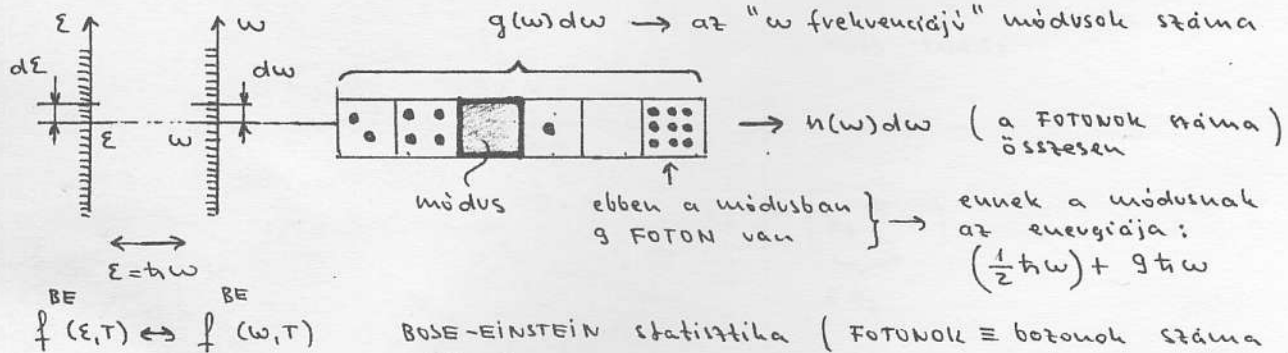 g(ω)dω → az "ω frekvenciájú" módusok száma
ε ω
dε dω
ε ω
→ n(ω)dω (a FOTONOK száma)
összesen
módus
ebben a módusban
9 FOTON van
→ ennek a módusnak
az energiája:
(1/2 ħω) + 9ħω
ε = ħω
f^BE (ε,T) ↔ f^BE (ω,T) BOSE-EINSTEIN statisztika (FOTONOK ≡ bozonok száma